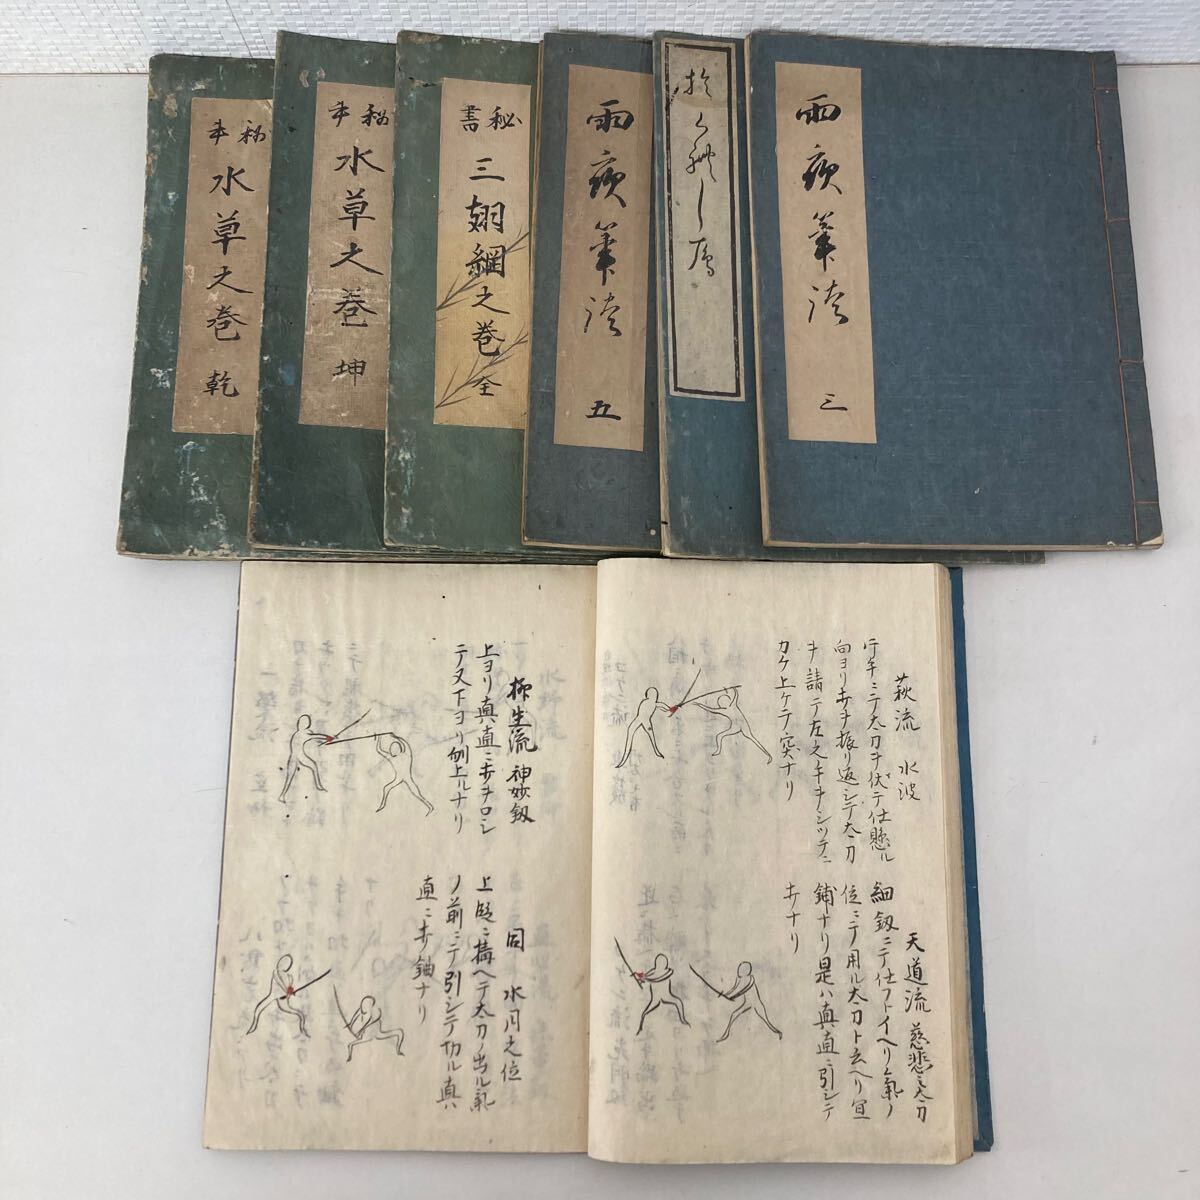 雨夜筆談
三
雨夜筆談
五
秘書
三翅綱之巻
全
秘本
水草之巻
坤
秘本
水草之巻
乾
萩流 水波
行年ニテ太刀ヲ伏テ仕懸ル
向ヨリ打ヲ振リ返シテ太刀
ヲ請テ左之手ヲシツテニ
カケ上ケテ突ナリ
天道流 慈悲之太刀
細釼ニテ仕フトイヘリ
位ニテ用ル太刀ト云ヘリ
鋪ナリ是ハ真直ニ引シテ
打ナリ
柳生流 神妙釼
上ヨリ真直ニ打ヲロシ
テ又下ヨリ刎上ルナリ
同 水月之位
上段ニ構ヘテ太刀ノ出ル氣
ノ前ニテ引シテ切ル真
直ニ打鋪ナリ